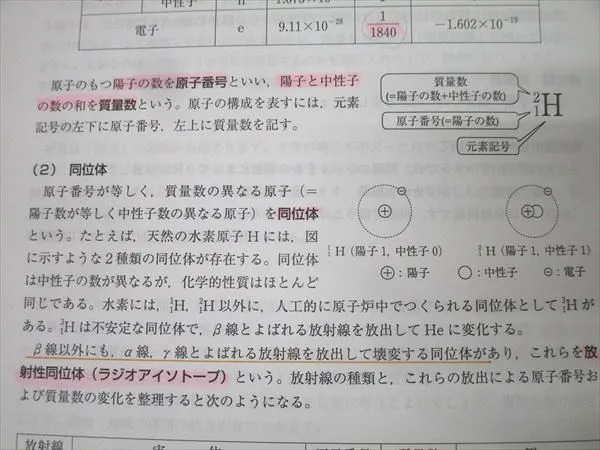 電子 e 9.11×10⁻²⁸ 1/1840 −1.602×10⁻¹⁹
原子のもつ陽子の数を原子番号といい，陽子と中性子
の数の和を質量数という。原子の構成を表すには，元素
記号の左下に原子番号，左上に質量数を記す。
質量数
(=陽子の数+中性子の数)
原子番号(=陽子の数)
²₁H
元素記号
(2) 同位体
原子番号が等しく，質量数の異なる原子（＝
陽子数が等しく中性子数の異なる原子）を同位体
という。たとえば，天然の水素原子Hには，図
に示すような2種類の同位体が存在する。同位体
は中性子の数が異なるが，化学的性質はほとんど
¹₁H (陽子1, 中性子0) ²₁H (陽子1, 中性子1)
⊕：陽子 ◯：中性子 ⊖：電子
同じである。水素には，¹₁H，²₁H以外に，人工的に原子炉中でつくられる同位体として³₁Hが
ある。³₁Hは不安定な同位体で，β線とよばれる放射線を放出してHeに変化する。
β線以外にも，α線，γ線とよばれる放射線を放出して壊変する同位体があり，これらを放
射性同位体（ラジオアイソトープ）という。放射線の種類と，これらの放出による原子番号お
よび質量数の変化を整理すると次のようになる。
放射線